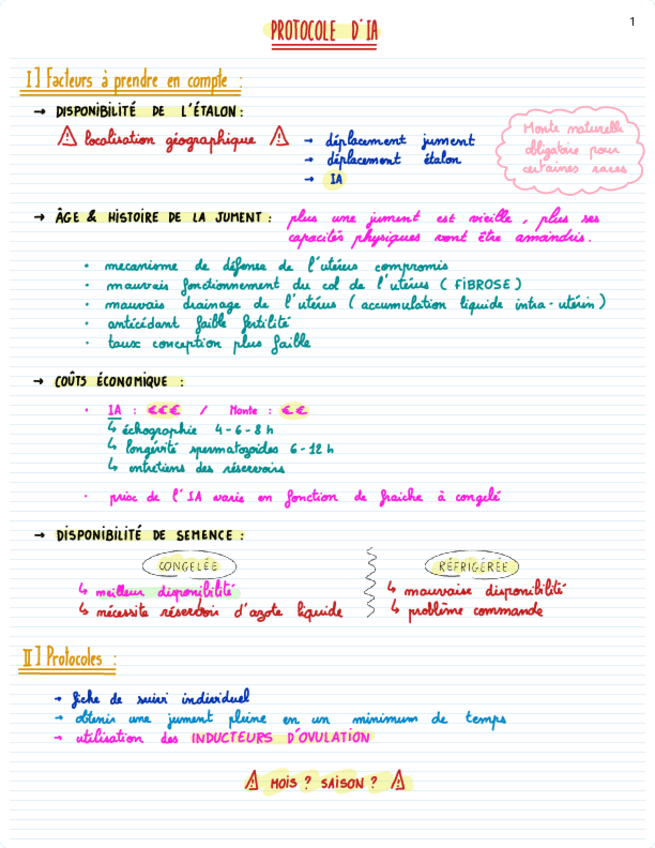 1
PROTOCOLE D'IA
I] Facteurs à prendre en compte :
→ DISPONIBILITÉ DE L'ÉTALON :
⚠ localisation géographique ⚠ → déplacement jument
→ déplacement étalon
→ IA
Monte naturelle
obligatoire pour
certaines races
→ ÂGE & HISTOIRE DE LA JUMENT : plus une jument est vieille, plus ses
capacités physiques vont être amoindris.
• mecanisme de défense de l'utérus compromis
• mauvais fonctionnement du col de l'utérus (FIBROSE)
• mauvais drainage de l'utérus (accumulation liquide intra-utérin)
• antécédant faible fertilité
• taux conception plus faible
→ COÛTS ÉCONOMIQUE :
• IA : €€€ / Monte : €€
↳ échographie 4-6-8 h
↳ longévité spermatozoïdes 6-12 h
↳ entretiens des réservoirs
• prix de l'IA varie en fonction de fraiche à congelé
→ DISPONIBILITÉ DE SEMENCE :
CONGELÉE
↳ meilleur disponibilité
↳ nécessite réservoir d'azote liquide
RÉFRIGÉRÉE
↳ mauvaise disponibilité
↳ problème commande
II] Protocoles :
→ fiche de suivi individuel
→ obtenir une jument pleine en un minimum de temps
→ utilisation des INDUCTEURS D'OVULATION
⚠ MOIS ? SAISON ? ⚠